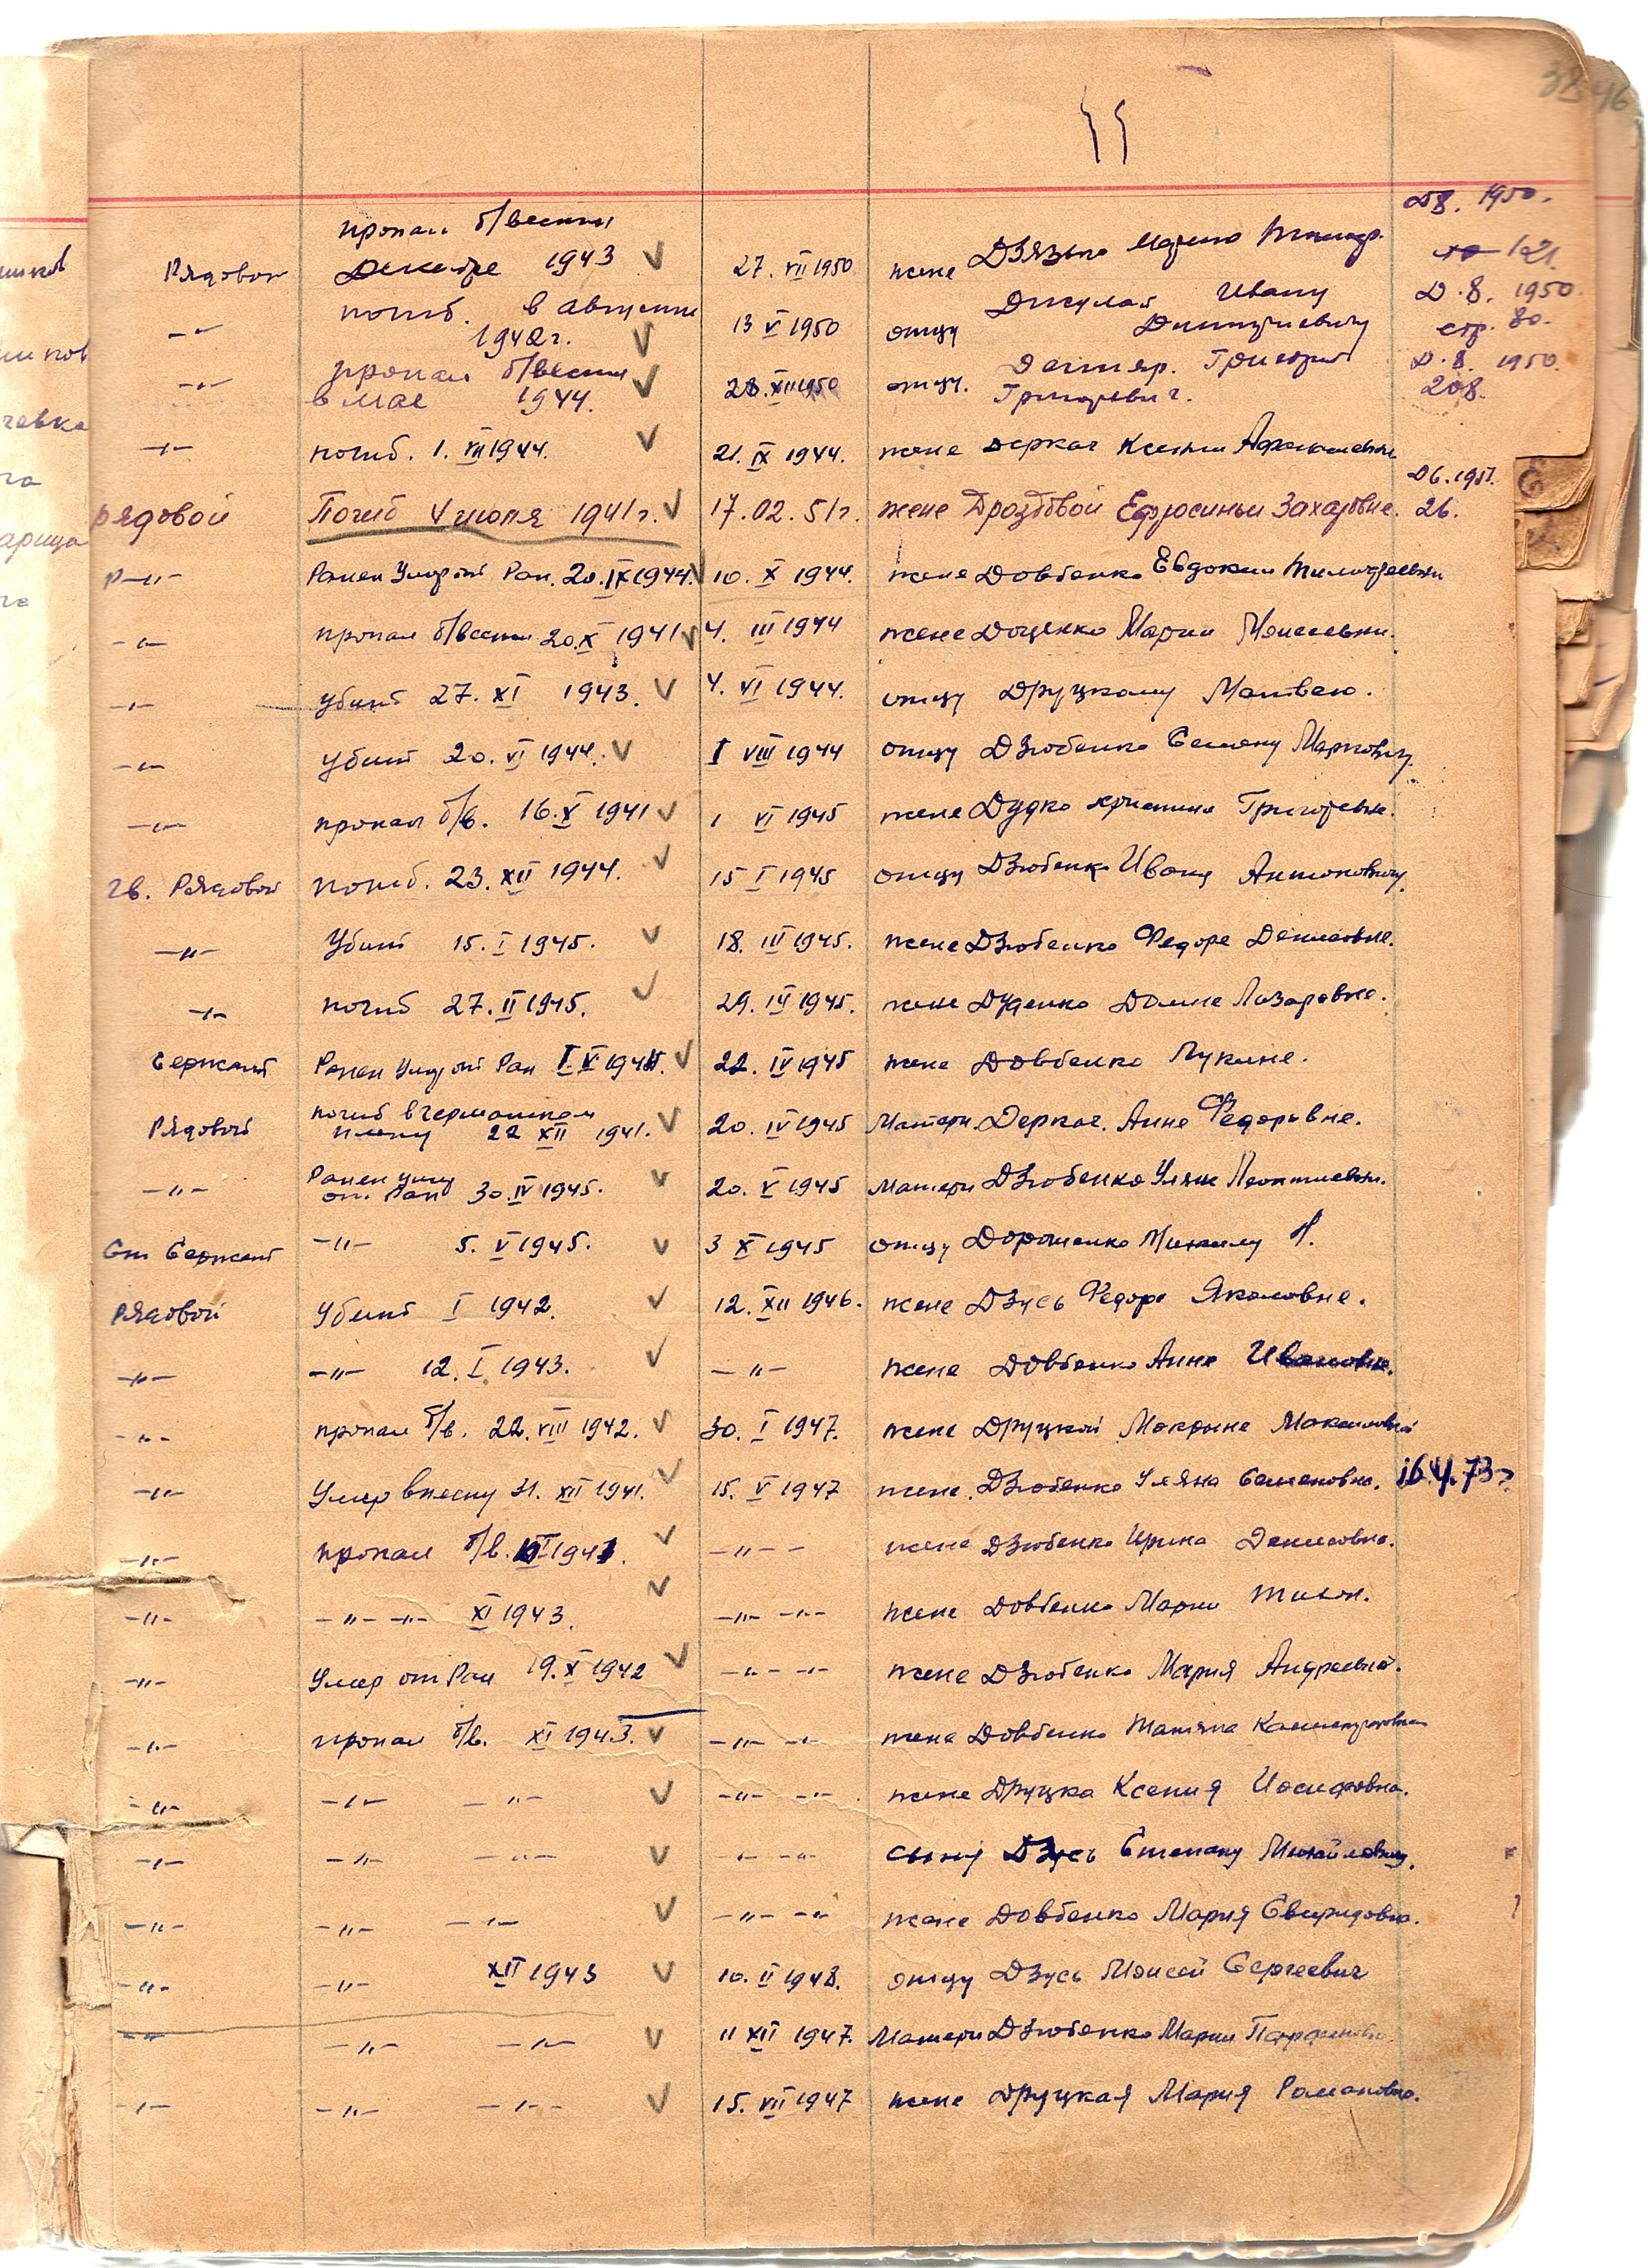 38 46
Д8. 1950.
пропал б/вести
Рядовой Декабре 1943 27. VII 1950 жене Дзязько 121.
погиб. в августе Ивану Д.8. 1950.
-"- 1942 г. 13 V 1950 отцу Дмитриевичу стр. 80.
пропал б/вести Григорий Д.8. 1950.
-"- в мае 1944. 28. XII 1950 отцу. Григориевич. 208.
-"- погиб. 1. VII 1944. 21. IX 1944. жене Деркач Ксении
Д6. 1951.
рядовой Погиб V июля 1941 г. 17.02.51 г. жене Дроздовой Ефросиньи Захаровне. 26.
Р-"- Ранен Умер от Ран. 20. IX 1944. 10. X 1944. жене Довбенко Евдокии Тимофеевны
-"- пропал б/вести 20. X 1941 4. III 1944 жене Доценко Марии Моисеевны.
-"- Убит 27. XI 1943. 4. VI 1944. отцу Друцкому Матвею.
-"- Убит 20. VI 1944. I VIII 1944 отцу Дзюбенко Семену Марковичу.
-"- пропал б/в. 16. X 1941 1 VI 1945 жене Дудко Христина Григорьевне.
Гв. Рядовой погиб. 23. XII 1944. 15 I 1945 отцу Дзюбенко Ивану Антоновичу.
-"- Убит 15. I 1945. 18. III 1945. жене Дзюбенко Федоре Денисовне.
-"- погиб 27. II 1945. 29. IV 1945. жене Дуденко Домне Лазаровне.
Сержант Ранен Умер от Ран 22. IV 1945 жене Довбенко Лукине.
погиб в германском
Рядовой плену 22 XII 1941. 20. IV 1945 Матери Деркач. Анне Федоровне.
Ранен умер
-"- от Ран 30. IV 1945. 20. V 1945 Матери Дзюбенко Уляне Леонтиевне.
Ст Сержант -"- 5. V 1945. 3 X 1945 отцу Дорошенко Михаилу
Рядовой Убит I 1942. 12. XII 1946. жене Дзусь Федоре Якововне.
-"- -"- 12. I 1943. -"- жене Довбенко Анне Ивановне.
-"- пропал б/в. 22. VIII 1942. 30. I 1947. жене Друцкой Мокрине Максимовне
-"- Умер в плену 31. XII 1941. 15. V 1947 жене. Дзюбенко Уляна Семеновна. 16.4.73г
-"- пропал б/в. -"- - жене Дзюбенко Ирина Денисовна.
-"- -"- -"- XI 1943. -"- -"- жене Довбенко Мария Тихон.
-"- Умер от Ран 19. X 1942 -"- -"- жене Дзюбенко Мария Андреевна.
-"- пропал б/в. XI 1943. -"- -"- жена Довбенко Татяна
-"- -"- -"- -"- -"- жене Друцка Ксения Иосифовна.
-"- -"- -"- -"- -"- сыну Дзусь Степану Михайловичу.
-"- -"- -"- -"- -"- жене Довбенко Мария Свиридовна.
-"- -"- XII 1943 10. II 1948. отцу Дзусь Моисей Сергеевич
-"- -"- -"- 11 XII 1947. Матери Дзюбенко Марии
-"- -"- -"- 15. VII 1947 жене Друцкая Мария Романовна.